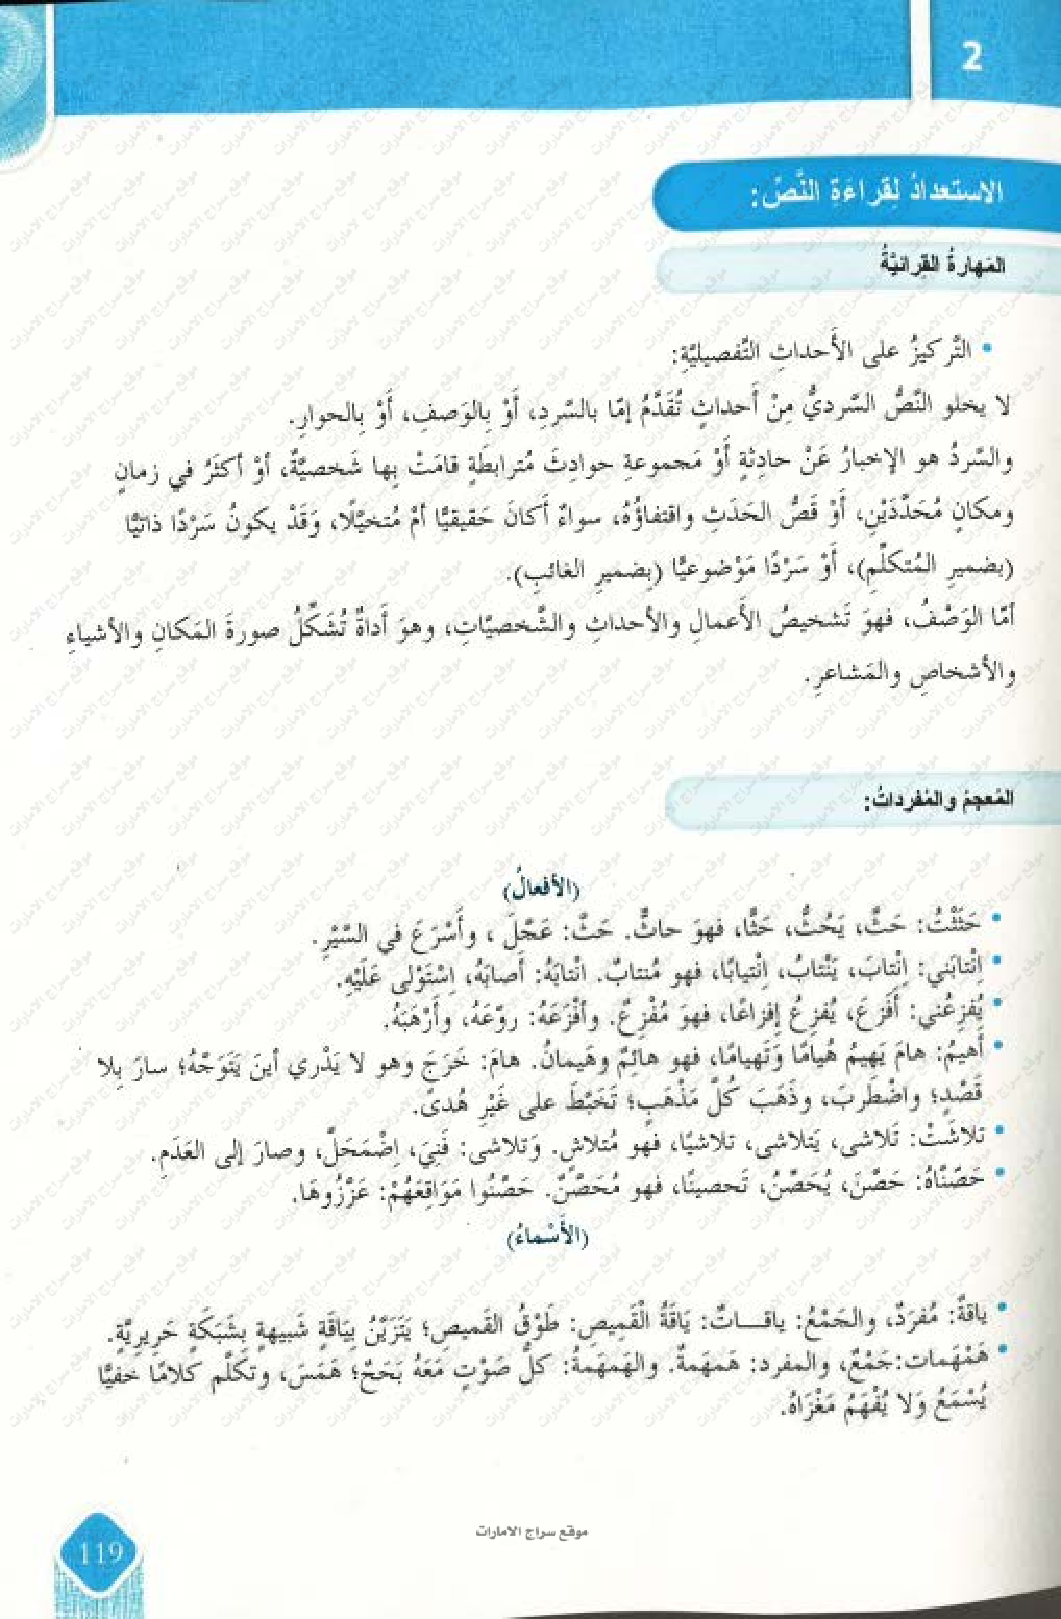 2
الاستعدادُ لِقراءَةِ النَّصِّ:
المَهارةُ القِرائيَّةُ
• التَّركيزُ على الأَحداثِ التَّفصيليَّةِ:
لا يخلو النَّصُّ السَّرديُّ مِنْ أَحداثٍ تُقَدَّمُ إمّا بالسَّردِ، أَوْ بِالوَصفِ، أَوْ بِالحوارِ.
والسَّردُ هو الإخبارُ عَنْ حادِثةٍ أَوْ مَجموعةِ حوادِثَ مُترابطَةٍ قامَتْ بِها شَخصيَّةٌ، أوْ أكثَرُ في زمانٍ
ومكانٍ مُحَدَّدَيْنِ، أَوْ قَصُّ الحَدَثِ واقتفاؤُهُ، سواءٌ أَكانَ حَقيقيًّا أمْ مُتخيَّلًا، وَقَدْ يكونُ سَرْدًا ذاتيًّا
(بضميرِ المُتكلّمِ)، أَوْ سَرْدًا مَوْضوعيًّا (بِضميرِ الغائبِ).
أمّا الوَصْفُ، فهوَ تَشخيصُ الأَعمالِ والأحداثِ والشَّخصيّاتِ، وهوَ أَداةٌ تُشَكِّلُ صورةَ المَكانِ والأشياءِ
والأشخاصِ والمَشاعرِ.
المُعجمُ والمُفرداتُ:
(الأفعالُ)
• حَثَثْتُ: حَثَّ، يَحُثُّ، حَثًّا، فهوَ حاثٌّ. حَثَّ: عَجَّلَ ، وأَسْرَعَ في السَّيْرِ.
• اِنْتابَني: اِنْتابَ، يَنْتابُ، اِنْتيابًا، فهو مُنتابٌ. انْتابَهُ: أَصابَهُ، اِسْتَوْلى عَلَيْهِ.
• يُفزِعُني: أَفزَعَ، يُفزِعُ إفزاعًا، فهوَ مُفْزِعٌ. وأفْزَعَهُ: روّعَهُ، وأَرْهَبَهُ.
• أَهيمُ: هامَ يَهيمُ هُيامًا وَتَهيامًا، فهو هائِمٌ وهَيمانُ. هامَ: خَرَجَ وهو لا يَدْري أينَ يَتَوَجَّهُ؛ سارَ بِلا
قَصْدٍ؛ واضْطَربَ، وذَهَبَ كُلَّ مَذْهَبٍ؛ تَخَبَّطَ على غَيْرِ هُدىً.
• تلاشَتْ: تَلاشى، يَتلاشى، تلاشيًا، فهو مُتلاشٍ. وَتلاشى: فَنِيَ، اِضْمَحَلَّ، وصارَ إلى العَدَمِ.
• حَصَّنّاهُ: حَصَّنَ، يُحَصِّنُ، تَحصينًا، فهو مُحَصِّنٌ. حَصَّنُوا مَوَاقِعَهُمْ: عَزَّزُوهَا.
(الأَسْماءُ)
• ياقةٌ: مُفرَدٌ، والجَمْعُ: ياقـــاتٌ: يَاقَةُ الْقَمِيصِ: طَوْقُ القَميصِ؛ يَتَزَيَّنُ بِيَاقَةٍ شَبيهةٍ بِشَبَكَةٍ حَرِيريَّةٍ.
• هَمْهَمات:جَمْعٌ، والمفرد: هَمهَمةٌ. والهَمهَمةُ: كلُّ صَوْتٍ مَعَهُ بَحَحٌ؛ هَمَسَ، وتكلَّم كلامًا خفيًّا
يُسْمَعُ وَلا يُفْهَمُ مَغْزَاهُ.
موقع سراج الامارات
119